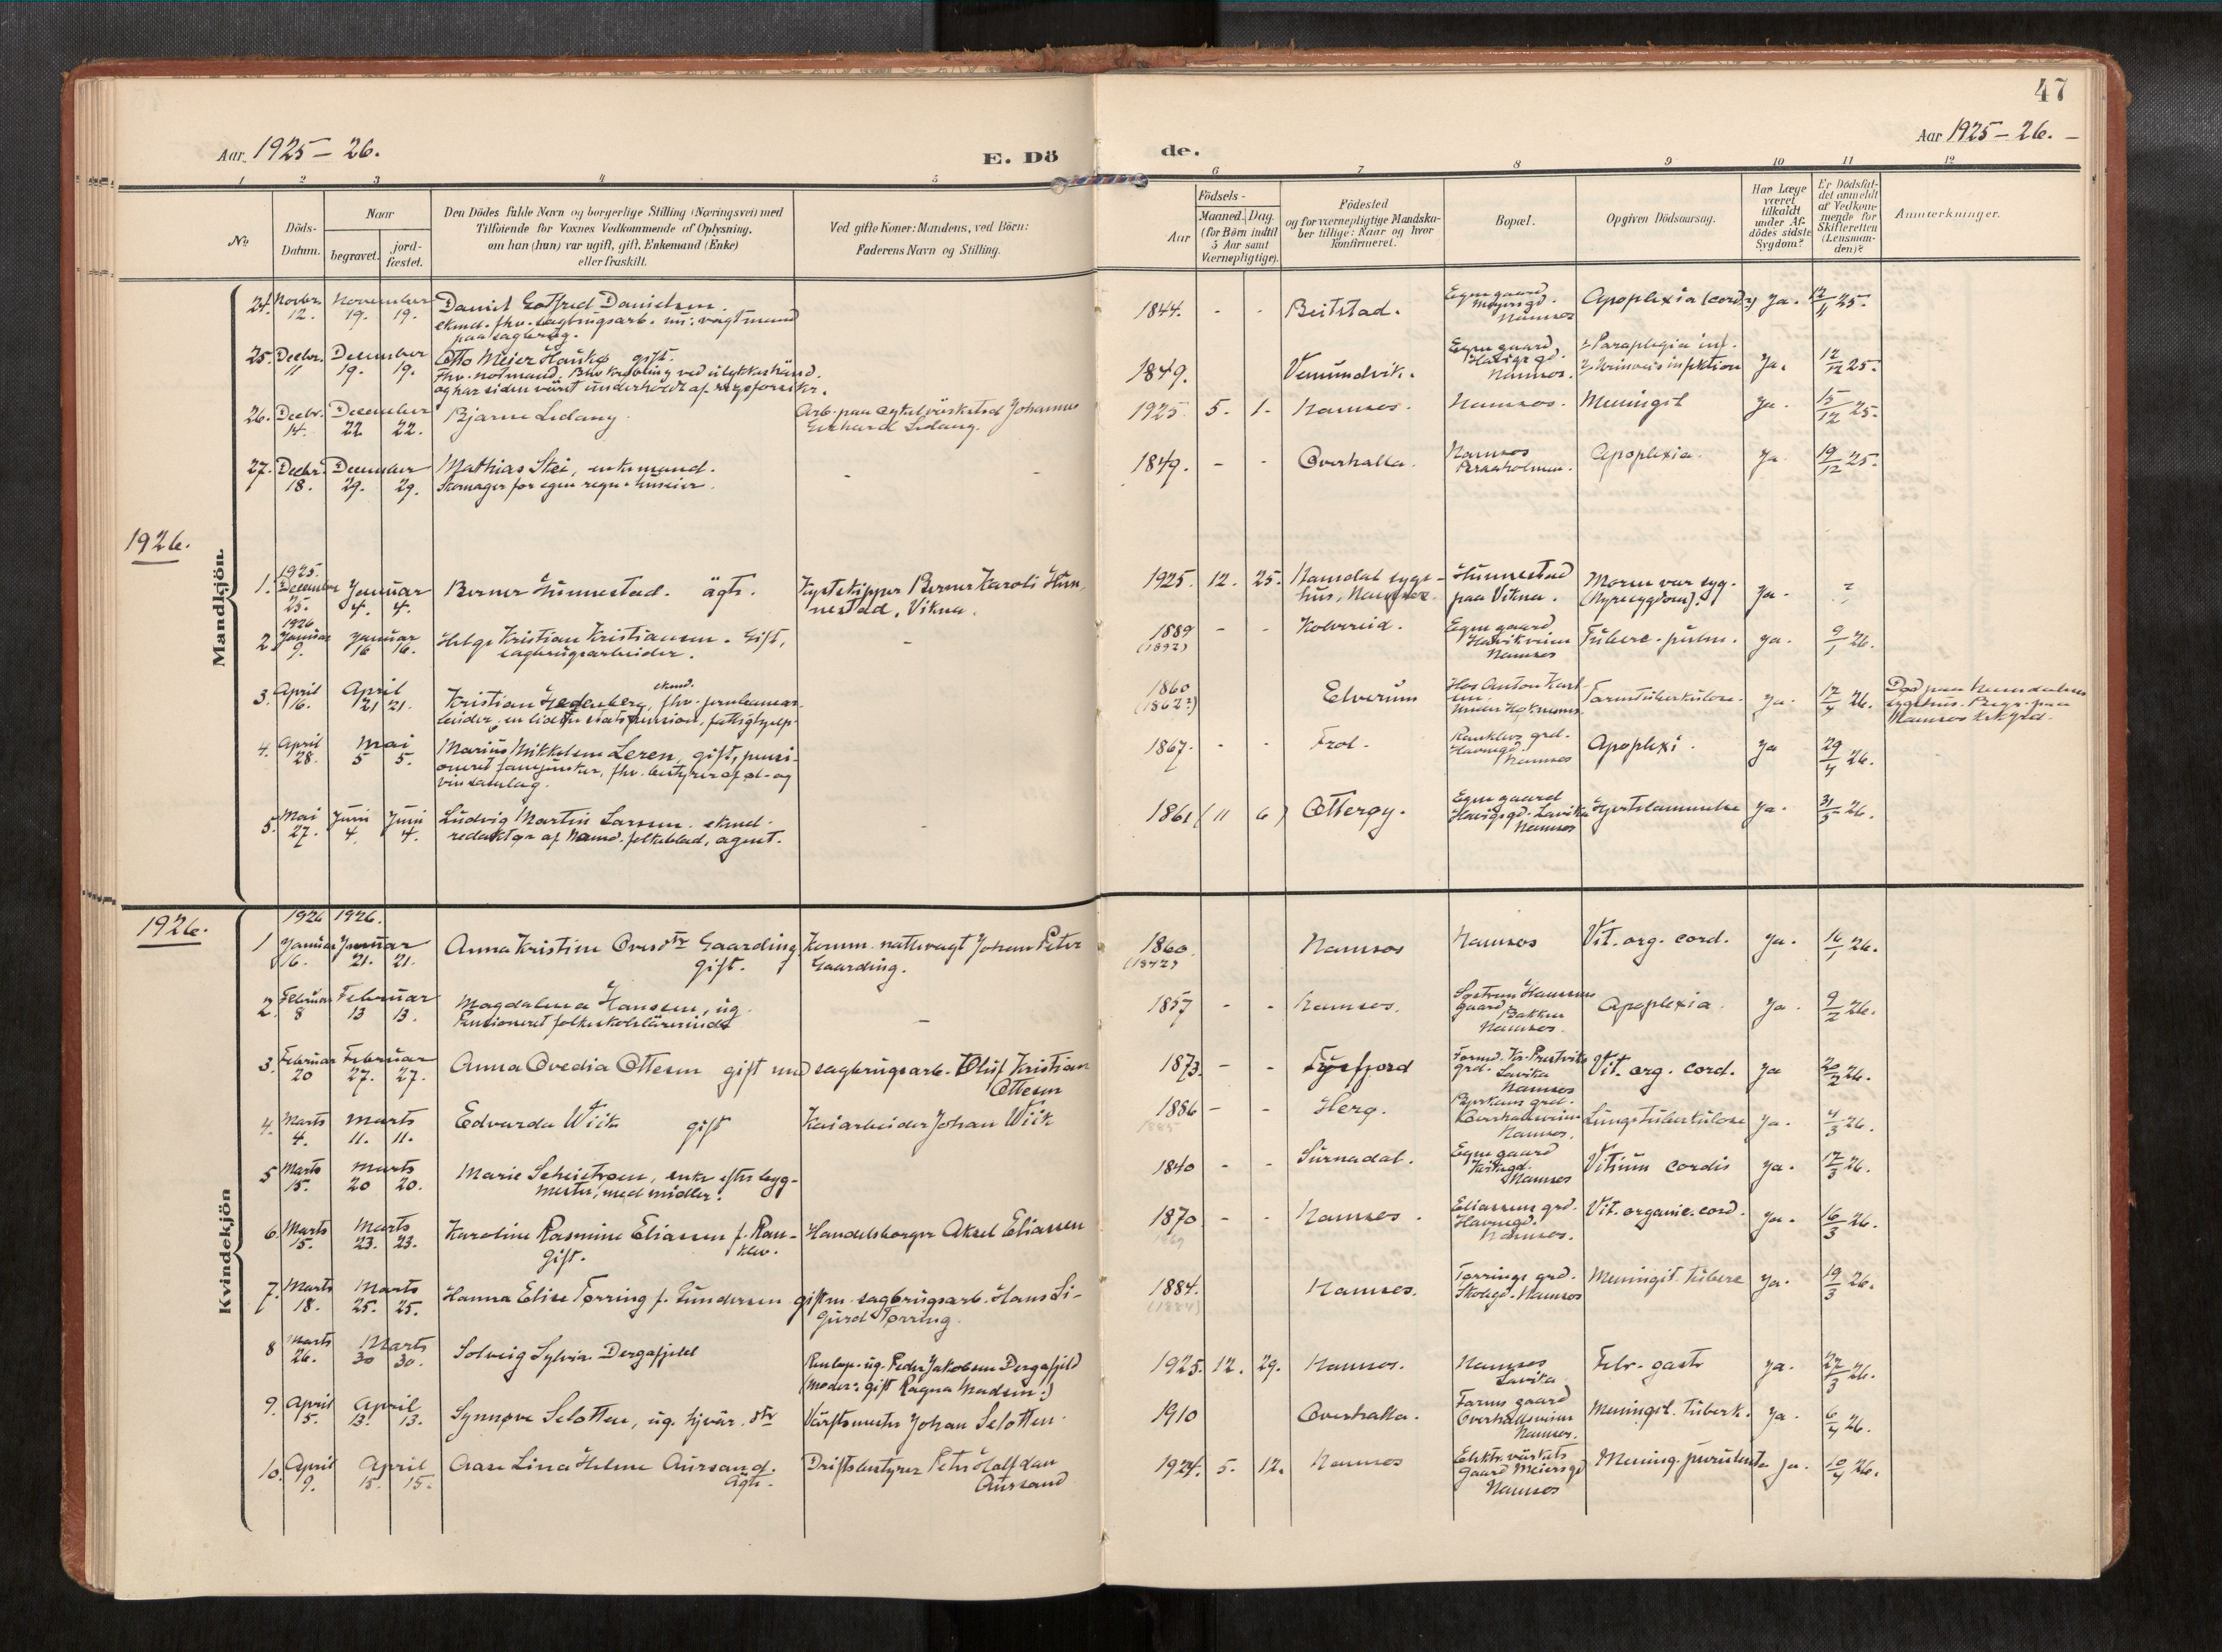 47
Aar 1925 - 26.
E. Dö
de.
Aar 1925 - 26. -
1 2 3 4 5 6 7 8 9 10 11 12
No
Döds-
Datum.
Naar
begravet.
jord-
fæstet.
Den Dödes fulde Navn og borgerlige Stilling (Næringsvei) med
Tilföiende for Voxnes Vedkommende af Oplysning,
om han (hun) var ugift, gift, Enkemand (Enke)
eller fraskilt.
Ved gifte Koner: Mandens, ved Börn:
Faderens Navn og Stilling.
Födsels-
Aar
Maaned. Dag.
(for Börn indtil
5 Aar samt
Værnepligtige).
Födested
og for værnepligtige Mandska-
ber tillige: Naar og hvor
konfirmeret.
Bopæl.
Opgiven Dödsaarsag.
Har Læge
været
tilkaldt
under Af-
dödes sidste
Sygdom?
Er Dödsfal-
det anmeldt
af Vedkom-
mende for
Skifteretten
(Lensman-
den)?
Anmærkninger.
Mandkjön.
24. Novbr. 12. November 19. 19. Daniel Gotfred Danielsen. 1844. - - Beitstad. Egen gaard Namsos Apoplexia Ja. 12/11 25.
ekmd. fhv. sagbrugsarb. nu: vagtmand
paa sagbrug.
25. Decbr. 11 December 19. 19. Otto Meier Haukø gift. 1849. Vemundvik. Egen gaard, Namsos. Paraplegia inf. Ja. 12/12 25.
Fhv. notmand. ved ulykkeshänd.
og har siden väret underholdt af
26. Decbr. 14. December 22 22. Bjarne Lidang. Arb. paa Johannes 1925 5. 1. Namsos. Namsos. Meningit Ja. 15/12 25.
Gerhard Lidang.
27. Decbr 18. December 29. 29. Mathias Stei, enkemand. - - 1849. - - Overhalla. Namsos Apoplexia. Ja 19/12 25.
Skomager for egen regn. huseier.
1926.
1. 1925. December 25. Januar 4. 4. Berner Hunnestad. ägte. Kystskipper Berner Karoli Hun- 1925. 12. 25. Namdal syge- Hunnestad Moren var syg. Ja. ?
nestad, Vikna. hus, Namsos. paa Vikna. (Nyresygdom).
2 1926 Januar 9. Januar 16 16. Helge Kristian Kristiansen. Gift, - 1889 - - Kolvereid. Egen gaard Havikveien Namsos Tuberc. pulm. Ja. 9/1 26.
sagbrugsarbeider. (1892)
3. April 16. April 21 21. Kristian Hedenberg, ekmd. fhv. 1860 Elverum Hos Anton Tarmtuberkulose. Ja. 17/4 26. Död paa Namdalens
en liden statspension, (1862?) sygehus. Begr. paa
Namsos kirkegrd.
4. April 28. Mai 5 5. Marius Mikkelsen Leren, gift, pensi- 1867. - - Frol. Havnegd. Namsos Apoplexi. Ja 29/4 26.
oneret fhv. bestyrer af øl- og
vinsamlag.
5. Mai 27. Juni 4. Juni 4. Ludvig Martin Larsen. ekmd. - 1861 (11 6) Otterøy. Egen gaard Namsos Hjertelammelse Ja. 31/5 26.
redaktør af Namd. folkeblad, agent.
Kvindekjön
1926.
1926 1926.
1 Januar 16. Januar 21. 21. Anna Kristine Ovesdtr Gaarding Komm. nattevagt Johan Peter 1860 Namsos Namsos Vit. org. cord. Ja. 16/1 26.
gift. Gaarding.
2. Februar 8 Februar 13 13. Magdalena Hanssen, ug. - 1857 - - Namsos. Hanssens gaard Bakken Namsos. Apoplexia. Ja. 9/2 26.
Pensioneret folkeskolelärerinde
3. Februar 20 Februar 27. 27. Anna Ovedia Ottesen gift med sagbrugsarb. Oluf Kristian 1873. - - Fosfjord Lavika Namsos Vit. org. cord. Ja 20/2 26.
Ottesen
4. Marts 4. Marts 11. 11. Edvarda Wiik gift Kaiarbeider Johan Wiik 1886 - - Herø. Namsos. Lungetuberkulose Ja. 4/3 26.
1885
5 Marts 15. Marts 20 20. Marie Scheistrøen, enke efter byg- 1840 - - Surnadal. Egen gaard Namsos Vitium cordis Ja. 17/3 26.
mester, med midler.
6. Marts 15. Marts 23. 23. Karoline Rasmine Eliassen f. Ran- Handelsborger Aksel Eliassen 1870 - - Namsos. Eliassens grd. Havnegd. Namsos. Vit. organic. cord. Ja. 16/3 26.
gift. klev. 1869
7. Marts 18. Marts 25. 25. Hanna Elise Tørring f. Gundersen gift m. sagbrugsarb. Hans Si- 1884. Namsos. Tørrings grd. Skolegd. Namsos Meningit. tuberc Ja. 19/3 26.
gurd Tørring. (1884)
8 Marts 26. Marts 30 30. Solveig Sylvia Dergafjeld ug. Peder Jakobsen Dergafjeld 1925. 12. 29. Namsos. Namsos Lavika Febr. gastr Ja. 27/3 26.
(Moder: gift Ragna Madsen:)
9. April 5. April 13. 13. Synnøve Slotten, ug. hjvär. dtr Värftsmester Johan Slotten. 1910 Overhalla. Farens gaard Overhallsveien Namsos. Meningit. Tuberk. Ja. 6/4 26.
10. April 9. April 15. 15. Aase Lina Helene Aursand. Driftsbestyrer Peter Halfdan 1924. 5. 12. Namsos Elektr. värkets gaard Meiersgd Namsos Mening. purulenta Ja. 10/4 26.
ägte. Aursand